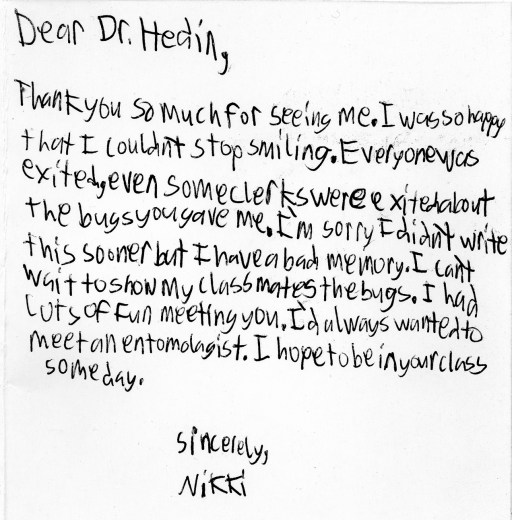 Dear Dr. Hedin,
Thank you so much for seeing me. I was so happy
that I couldn't stop smiling. Everyone was
exited, even some clerks were exited about
the bugs you gave me. I'm sorry I didn't write
this sooner but I have a bad memory. I can't
wait to show my classmates the bugs. I had
Lots of fun meeting you. I'd always wanted to
meet an entomologist. I hope to be in your class
someday.
Sincerely,
Nikki